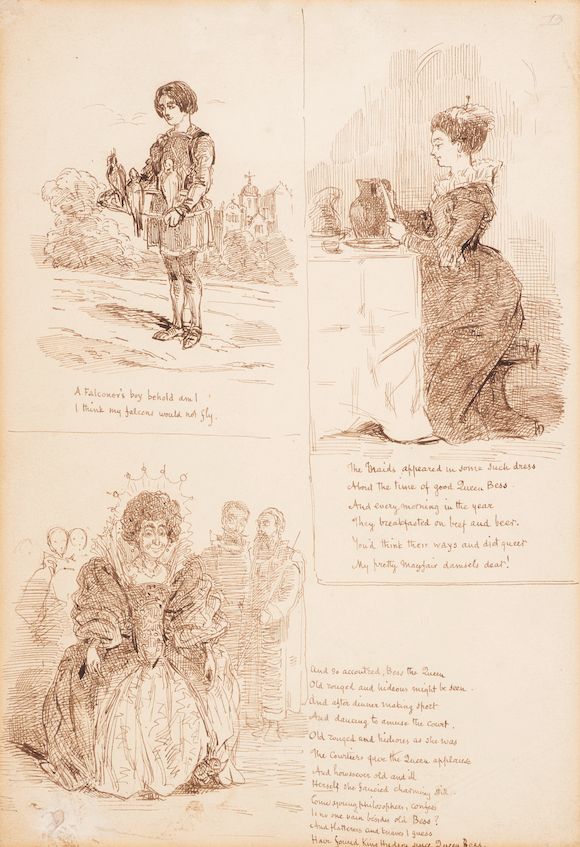 A Falconer's boy behold am I
I think my falcons would not fly.
The Maids appeared in some such dress
About the time of good Queen Bess.
And every morning in the year
They breakfasted on beef and beer.
You'd think their ways and diet queer
My pretty Mayfair damsels dear!
And so accoutred, Bess the Queen
Old rouged and hideous might be seen.
And after dinner making sport
And dancing to amuse the court.
Old rouged and hideous as she was
The Courtiers gave the Queen applause
And howsoever old and ill
Herself she fancied charming still.
Come young philosophers, confess
Is no one vain besides old Bess?
And flatterers and knaves I guess
Have found Kingdoms since Queen Bess.